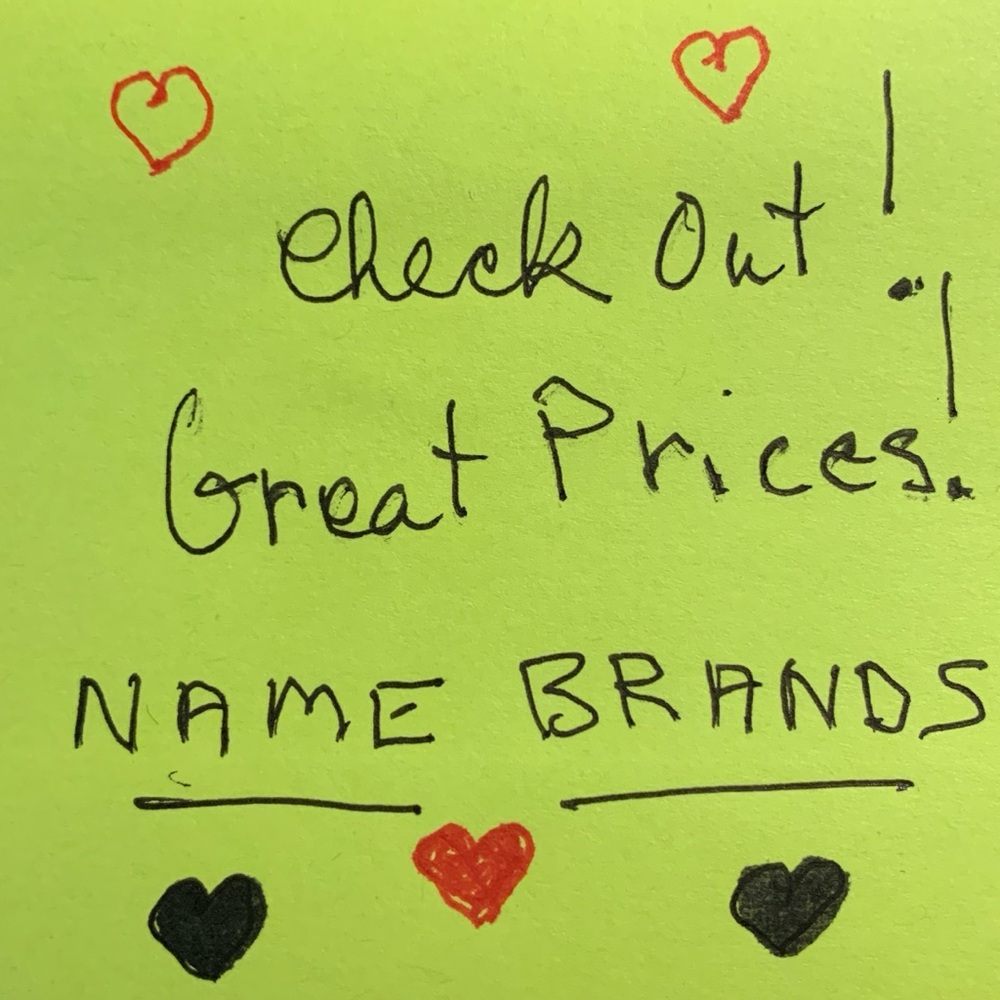 Check Out!
Great Prices!
NAME BRANDS